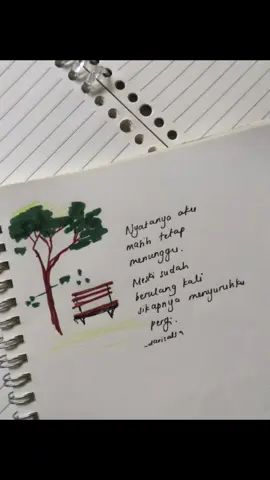 Nyatanya aku
masih tetap
menunggu.
Meski sudah
berulang kali
sikapnya menyuruhku
pergi.